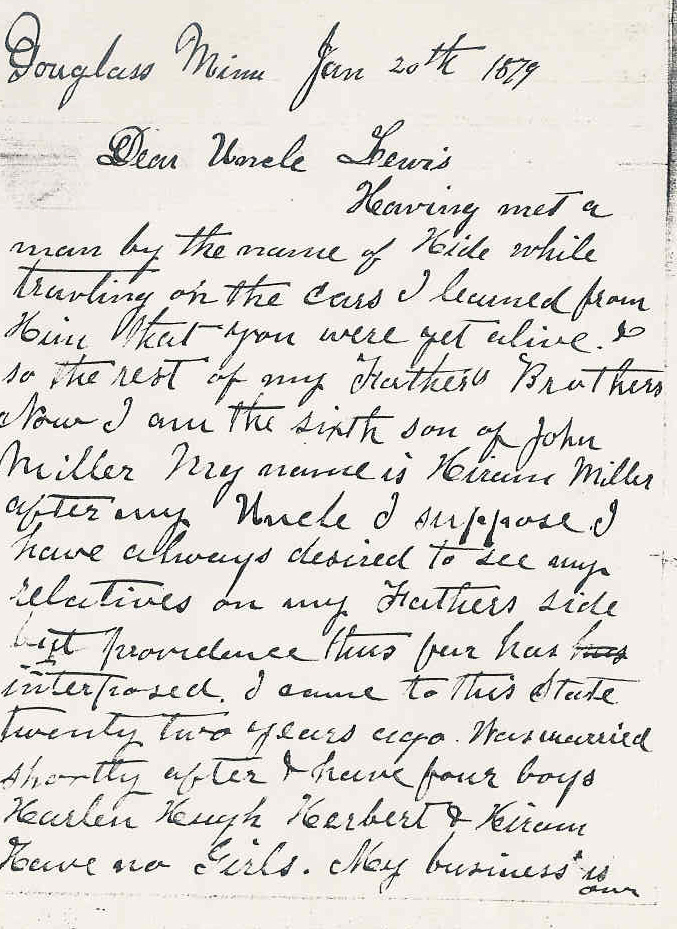 Douglass Minn Jan 20th 1879
Dear Uncle Lewis
Having met a
man by the name of Hide while
travling on the cars I learned from
Him that you were yet alive. &
so the rest of my Father's Brothers
Now I am the sixth son of John
Miller My name is Hiram Miller
after my Uncle I suppose I
have always desired to see my
relatives on my Fathers side
but providence thus far has has
interposed. I came to this State
twenty two years ago. Was married
shortly after & have four boys
Harlen Hugh Herbert & Hiram
Have no Girls. My business is
our